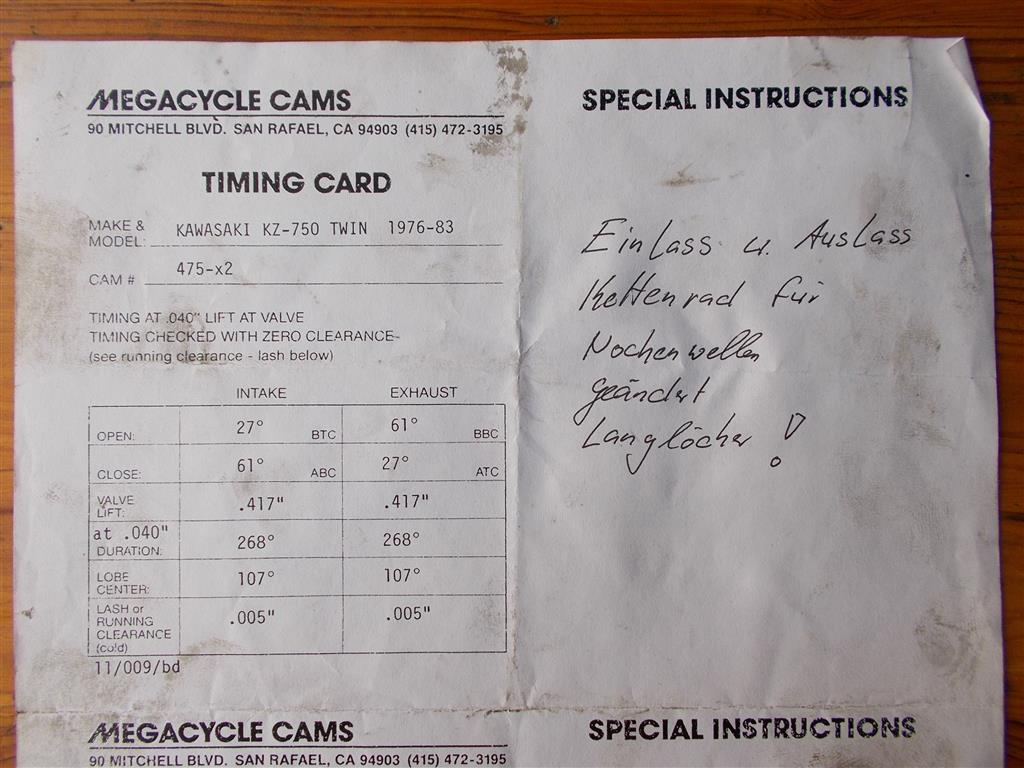 MEGACYCLE CAMS
90 MITCHELL BLVD. SAN RAFAEL, CA 94903 (415) 472-3195
TIMING CARD
MAKE & MODEL: KAWASAKI KZ-750 TWIN 1976-83
CAM # 475-x2
TIMING AT .040" LIFT AT VALVE
TIMING CHECKED WITH ZERO CLEARANCE-
(see running clearance - lash below)
INTAKE EXHAUST
OPEN: 27° BTC 61° BBC
CLOSE: 61° ABC 27° ATC
VALVE LIFT: .417" .417"
at .040" DURATION: 268° 268°
LOBE CENTER: 107° 107°
LASH or RUNNING CLEARANCE (cold) .005" .005"
11/009/bd
SPECIAL INSTRUCTIONS
Einlass u. Auslass
Kettenrad für
Nochenwellen
geändert
Langlöcher !
MEGACYCLE CAMS
90 MITCHELL BLVD. SAN RAFAEL, CA 94903 (415) 472-3195
SPECIAL INSTRUCTIONS